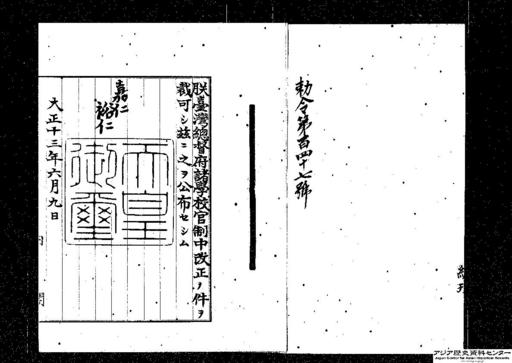 勅令第百四十七號
朕臺灣總督府諸學校官制中改正ノ件ヲ
裁可シ玆ニ之ヲ公布セシム
嘉仁
裕仁
天皇
御璽
大正十三年六月九日
内閣
アジア歴史資料センター
Japan Center for Asian Historical Records